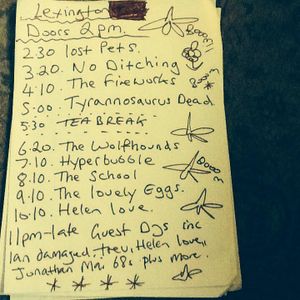 Lexington
Doors 2pm.
2.30 lost Pets.
3.20. No Ditching
4.10. The Fireworks
5.00. Tyrannosaurus Dead
5.30 TEA BREAK
6.20. The Wolfhounds
7.10. Hyperbubble
8.10. The School
9.10. The lovely Eggs.
10.10. Helen love.
11pm-late Guest DJs inc
Ian damaged, Trev, Helen love,
Jonathan Mai 68s plus more.